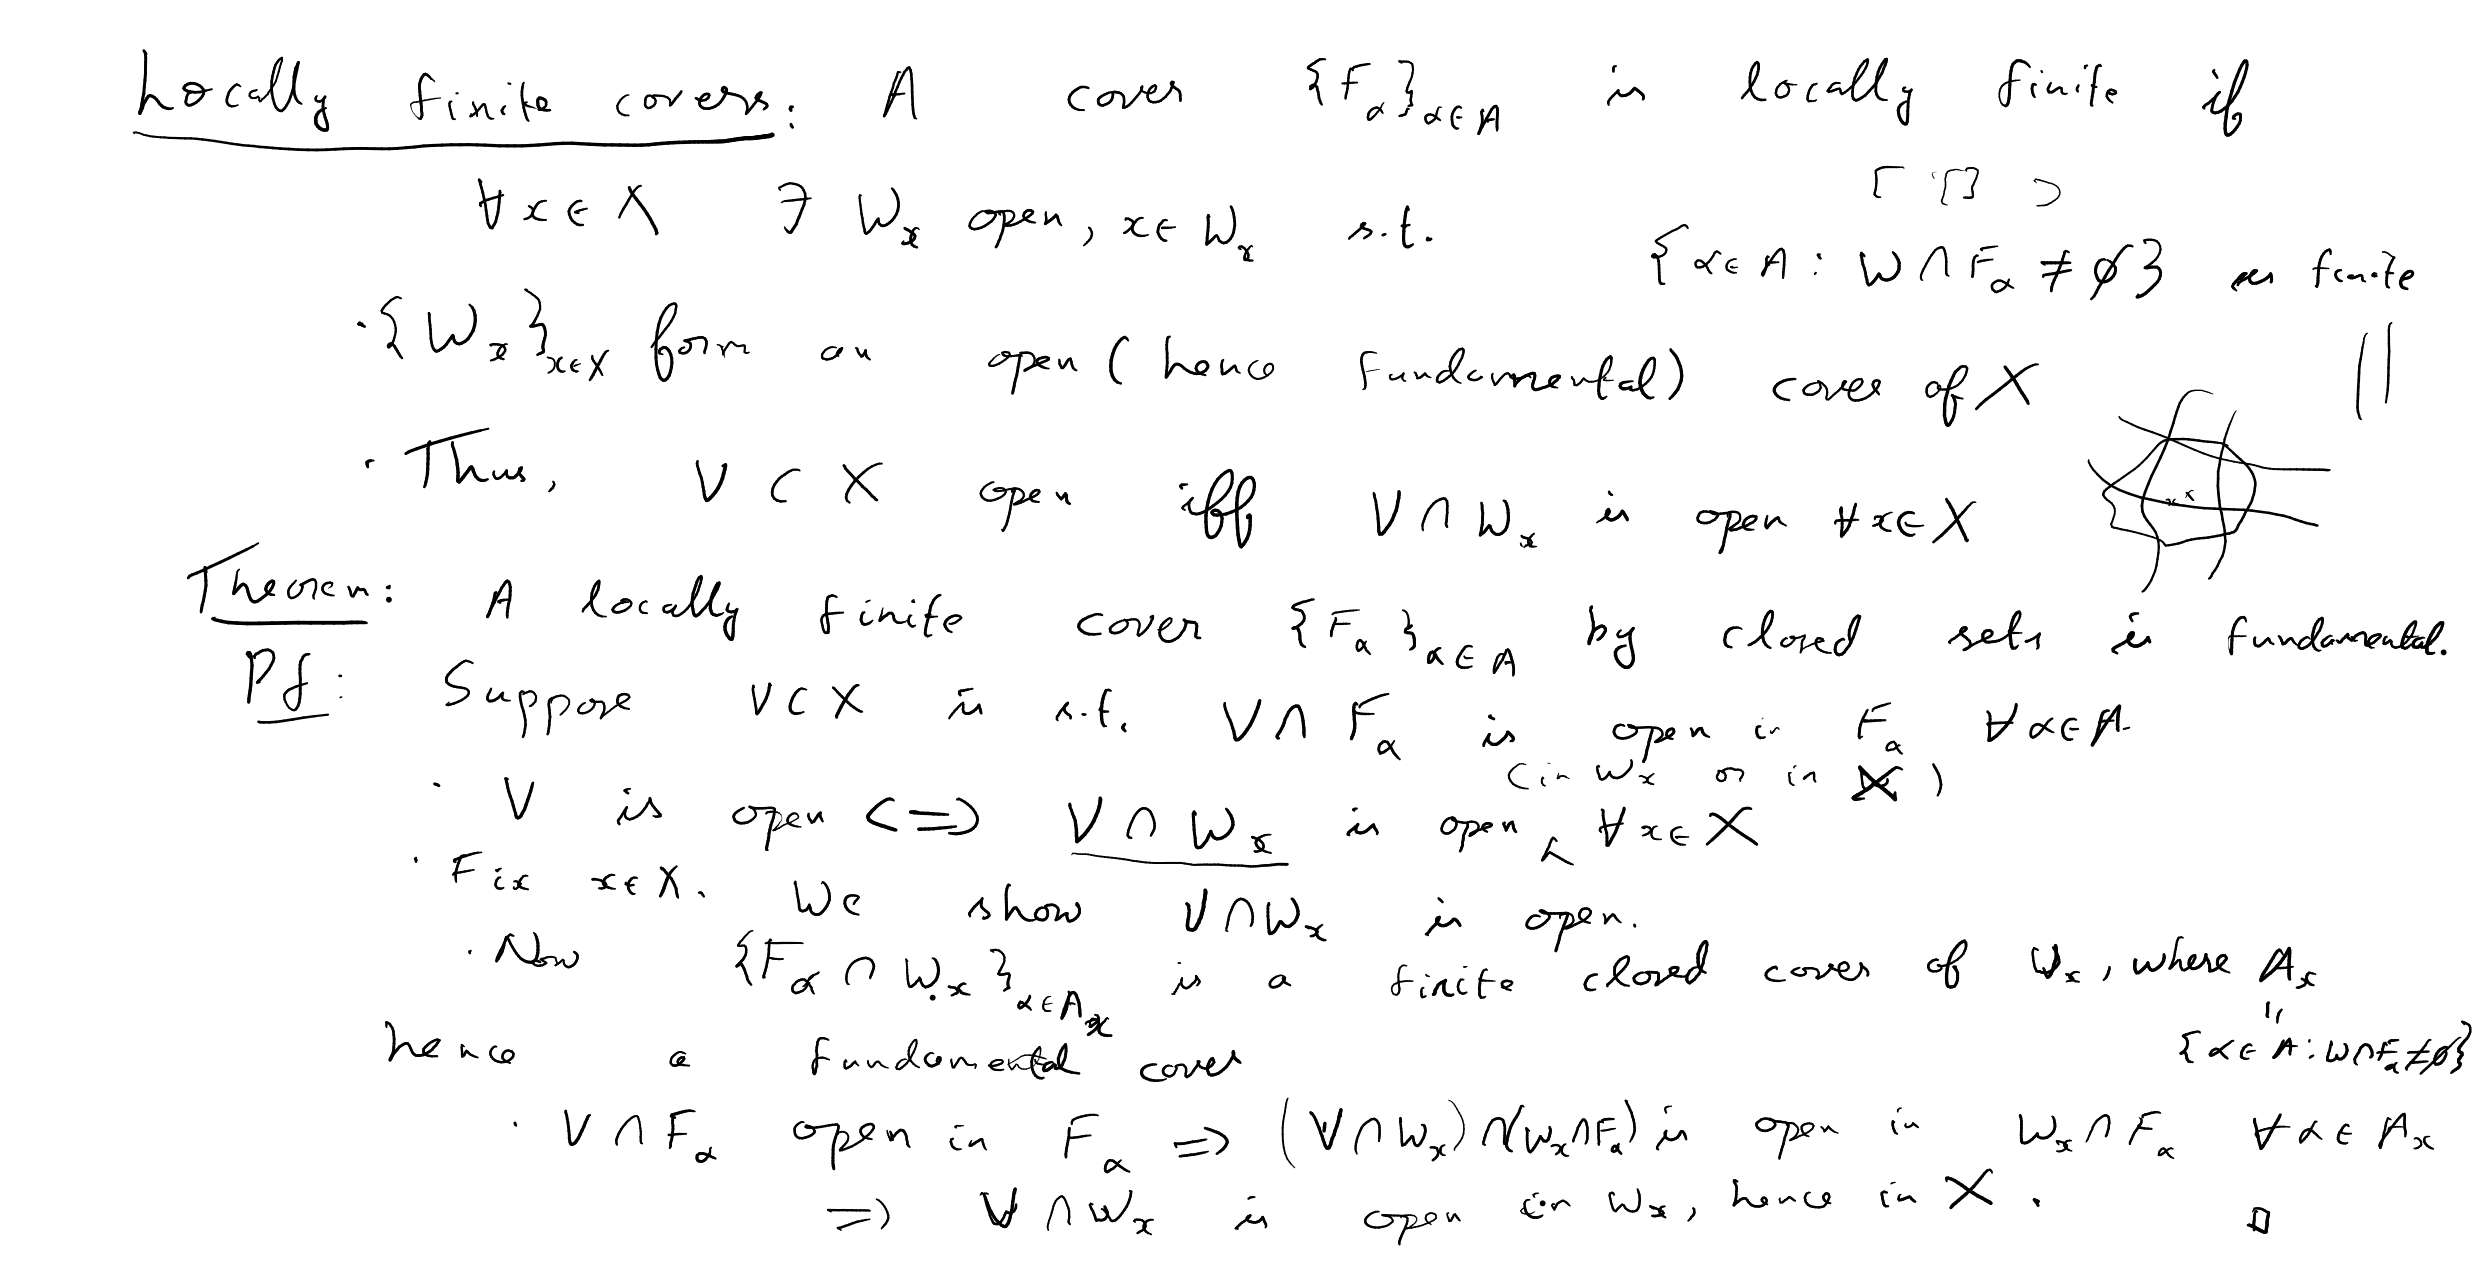 Locally finite covers: A cover {F_α}_{α∈A} is locally finite if
∀x∈X ∃ W_x open, x∈W_x s.t. {α∈A : W∩F_α ≠ ∅} is finite
· {W_x}_{x∈X} form an open (hence fundamental) cover of X
· Thus, V ⊂ X open iff V∩W_x is open ∀x∈X
Theorem: A locally finite cover {F_α}_{α∈A} by closed sets is fundamental.
Pf: Suppose V⊂X is s.t. V∩F_α is open in F_α ∀α∈A.
(in W_x or in X)
· V is open <=> V∩W_x is open ∀x∈X
· Fix x∈X. We show V∩W_x is open.
· Now {F_α∩W_x}_{α∈A_x} is a finite closed cover of W_x, where A_x
= {α∈A : W∩F_α≠∅}
hence a fundamental cover
· V∩F_α open in F_α => (V∩W_x)∩(W_x∩F_α) is open in W_x∩F_α ∀α∈A_x
=> V∩W_x is open in W_x, hence in X. □